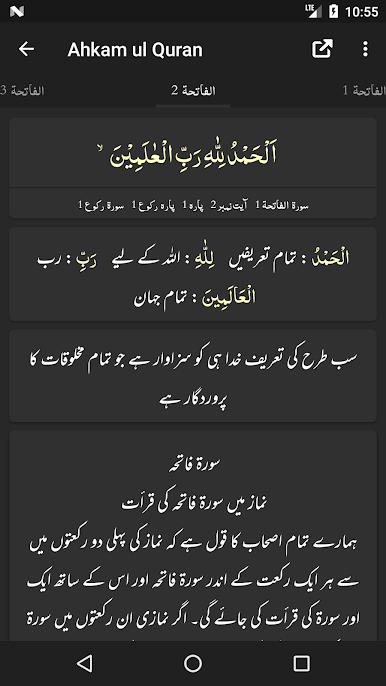 LTE 10:55
Ahkam ul Quran
الفاتحة 1 الفاتحة 2 الفاتحة 3
اَلْحَمْدُ لِلّٰهِ رَبِّ الْعٰلَمِيْنَ ۙ
سورۃ الفاتحة 1 آیت نمبر 2 پارہ 1 پارہ رکوع 1 سورۃ رکوع 1
الْحَمْدُ : تمام تعریفیں لِلّٰهِ : اللہ کے لیے رَبِّ : رب
الْعَالَمِينَ : تمام جہان
سب طرح کی تعریف خدا ہی کو سزاوار ہے جو تمام مخلوقات کا
پروردگار ہے
سورۃ فاتحہ
نماز میں سورۃ فاتحہ کی قرأت
ہمارے تمام اصحاب کا قول ہے کہ نماز کی پہلی دو رکعتوں میں
سے ہر ایک رکعت کے اندر سورۃ فاتحہ اور اس کے ساتھ ایک
اور سورۃ کی قرأت کی جائے گی۔ اگر نمازی ان رکعتوں میں سورۃ